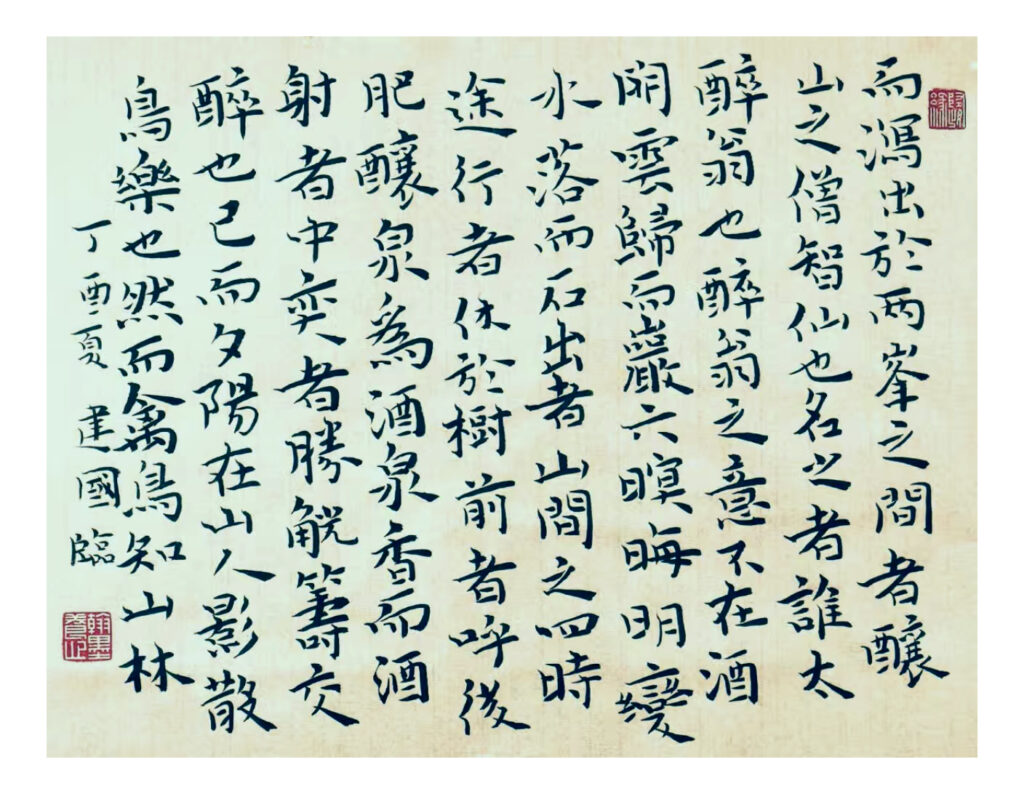 而瀉出於两峯之間者釀
山之僧智仙也名之者誰太
醉翁也醉翁之意不在酒
開雲歸而巖六暝晦明變
水落而石出者山間之四時
途行者休於樹前者呼後
肥釀泉為酒泉香而酒
射者中奕者勝觥籌交
醉也已而夕陽在山人影散
鳥樂也然而禽鳥知山林
丁酉夏 建國臨